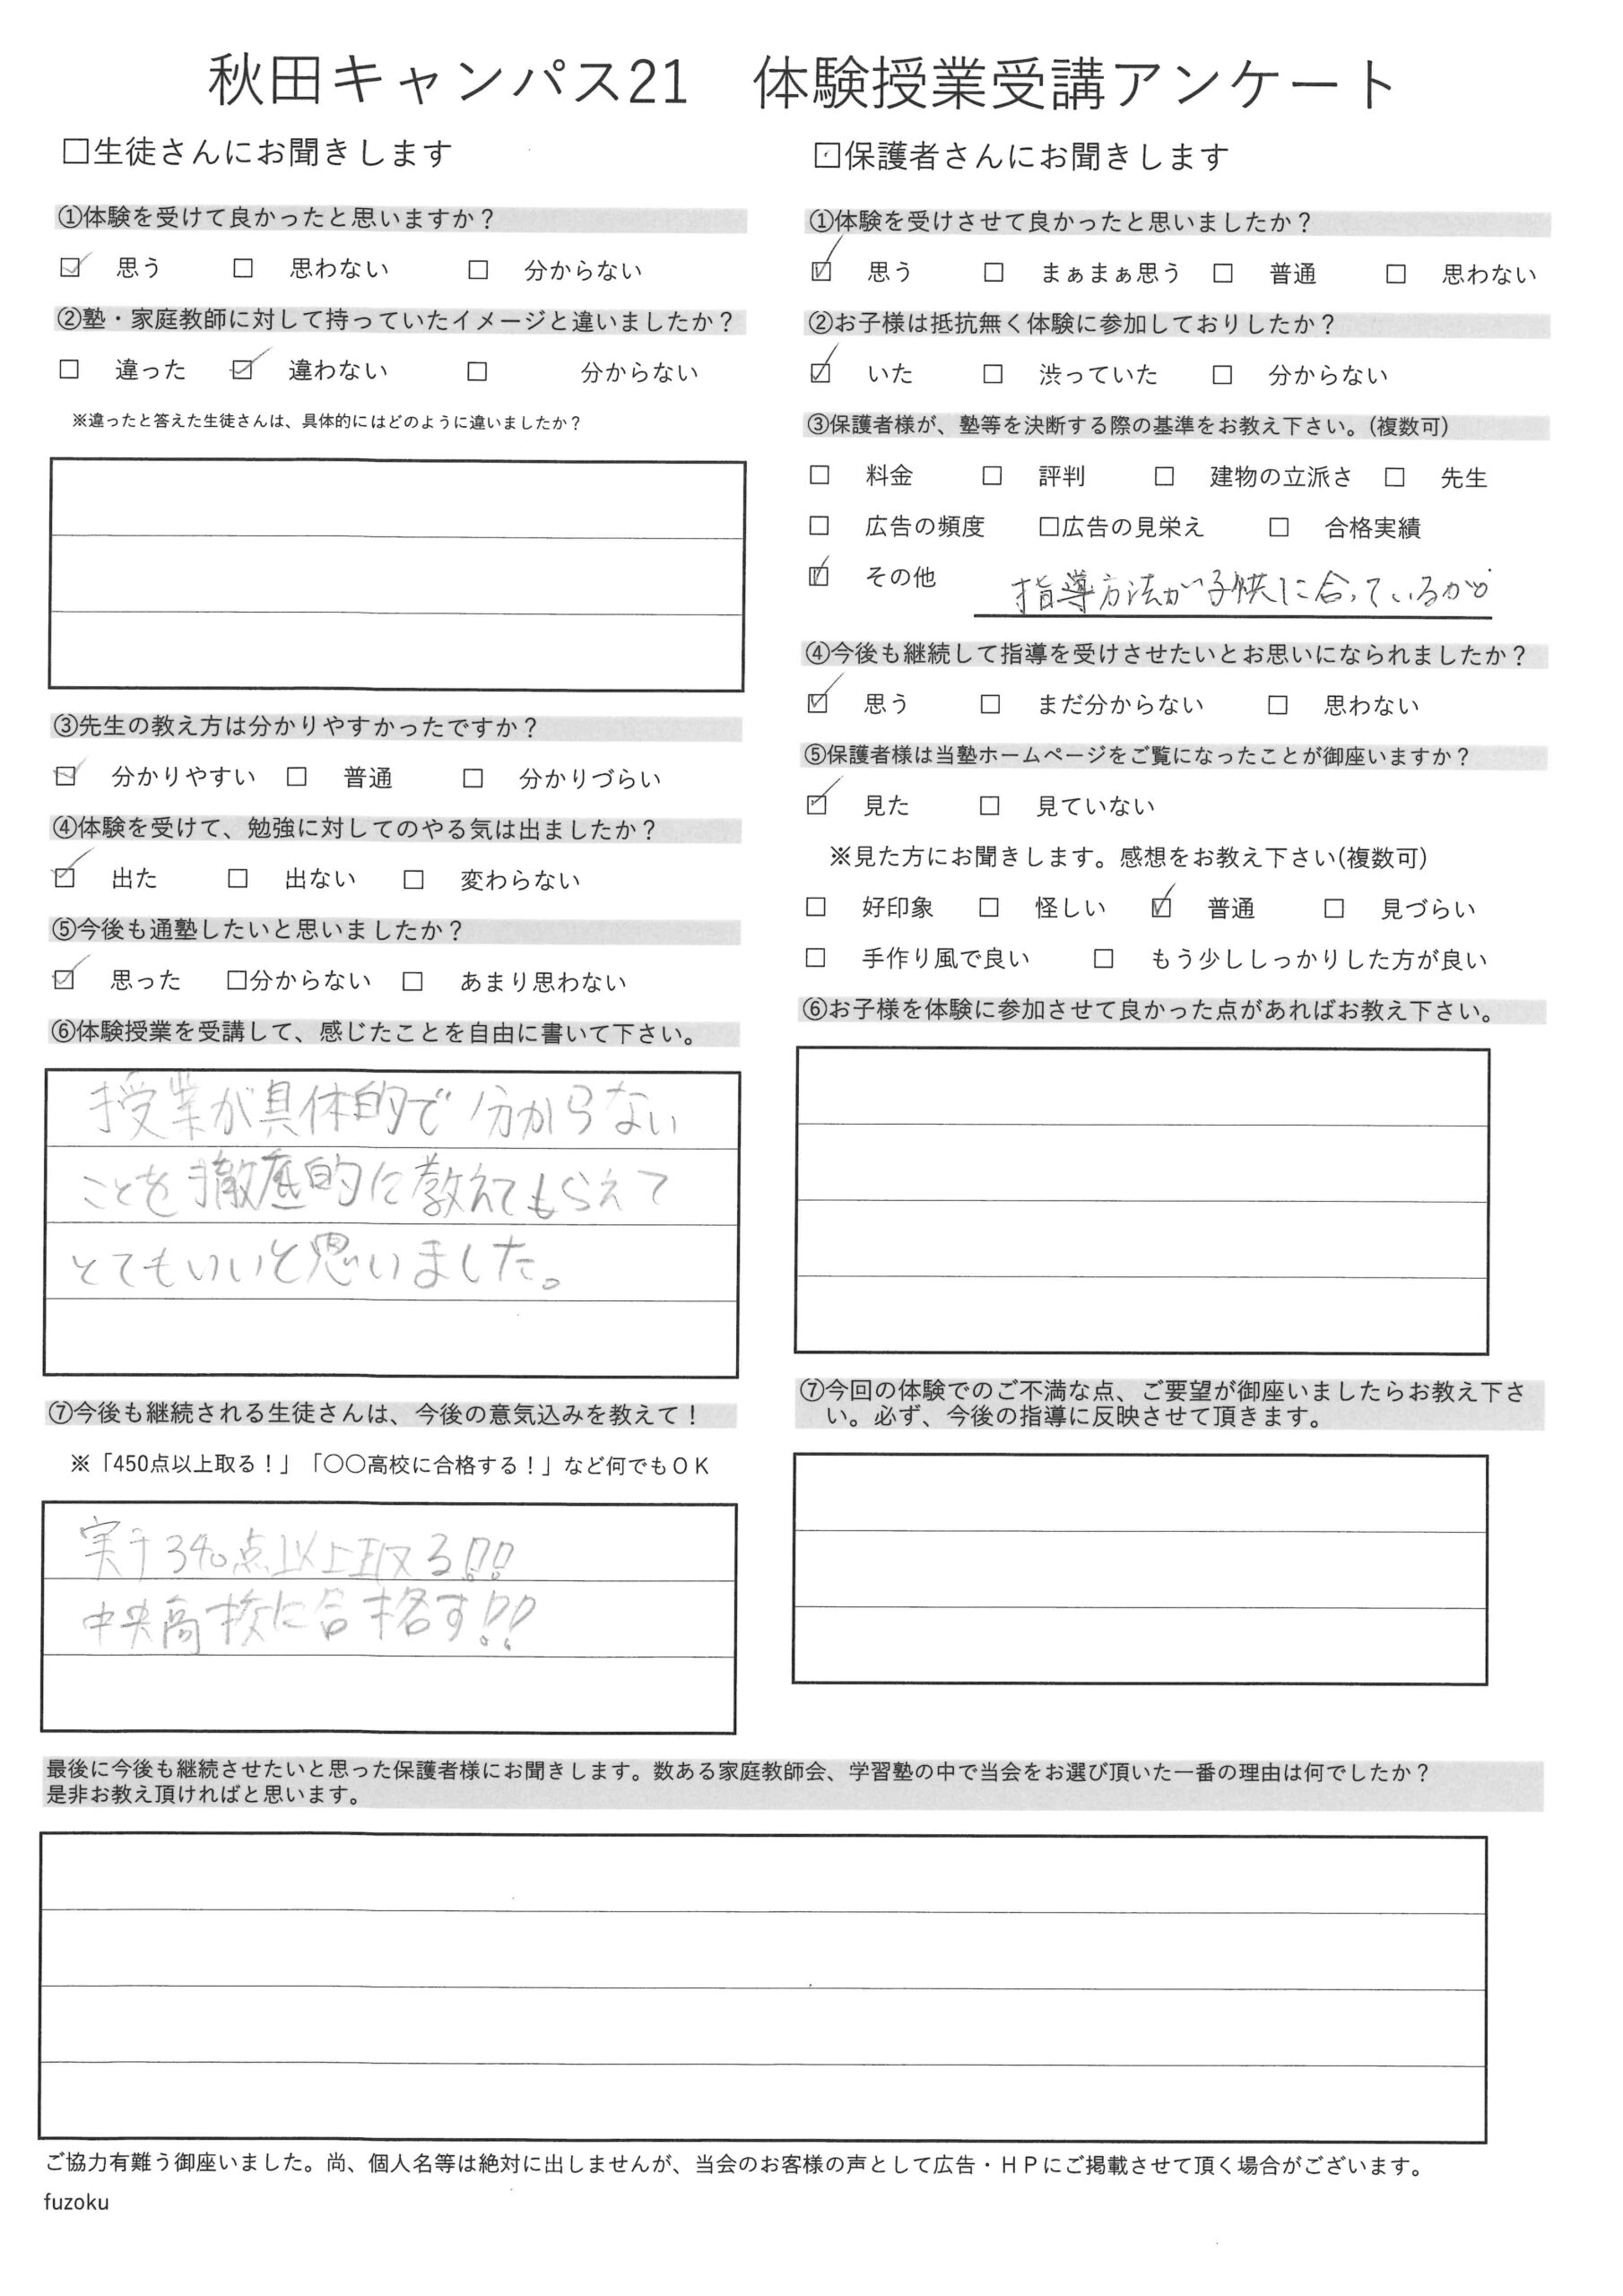 秋田キャンパス21　体験授業受講アンケート
□生徒さんにお聞きします
①体験を受けて良かったと思いますか？
☑ 思う □ 思わない □ 分からない
②塾・家庭教師に対して持っていたイメージと違いましたか？
□ 違った ☑ 違わない □ 分からない
※違ったと答えた生徒さんは、具体的にはどのように違いましたか？
③先生の教え方は分かりやすかったですか？
☑ 分かりやすい □ 普通 □ 分かりづらい
④体験を受けて、勉強に対してのやる気は出ましたか？
☑ 出た □ 出ない □ 変わらない
⑤今後も通塾したいと思いましたか？
☑ 思った □分からない □ あまり思わない
⑥体験授業を受講して、感じたことを自由に書いて下さい。
授業が具体的で分からない
ことを徹底的に教えてもらえて
とてもいいと思いました。
⑦今後も継続される生徒さんは、今後の意気込みを教えて！
※「450点以上取る！」「〇〇高校に合格する！」など何でもＯＫ
実テ340点以上取る!!
中央高校に合格す!!
□保護者さんにお聞きします
①体験を受けさせて良かったと思いましたか？
☑ 思う □ まぁまぁ思う □ 普通 □ 思わない
②お子様は抵抗無く体験に参加しておりしたか？
☑ いた □ 渋っていた □ 分からない
③保護者様が、塾等を決断する際の基準をお教え下さい。(複数可)
□ 料金 □ 評判 □ 建物の立派さ □ 先生
□ 広告の頻度 □広告の見栄え □ 合格実績
☑ その他 指導方法が子供に合っているか
④今後も継続して指導を受けさせたいとお思いになられましたか？
☑ 思う □ まだ分からない □ 思わない
⑤保護者様は当塾ホームページをご覧になったことが御座いますか？
☑ 見た □ 見ていない
※見た方にお聞きします。感想をお教え下さい(複数可)
□ 好印象 □ 怪しい ☑ 普通 □ 見づらい
□ 手作り風で良い □ もう少ししっかりした方が良い
⑥お子様を体験に参加させて良かった点があればお教え下さい。
⑦今回の体験でのご不満な点、ご要望が御座いましたらお教え下さ
い。必ず、今後の指導に反映させて頂きます。
最後に今後も継続させたいと思った保護者様にお聞きします。数ある家庭教師会、学習塾の中で当会をお選び頂いた一番の理由は何でしたか？
是非お教え頂ければと思います。
ご協力有難う御座いました。尚、個人名等は絶対に出しませんが、当会のお客様の声として広告・ＨＰにご掲載させて頂く場合がございます。
fuzoku